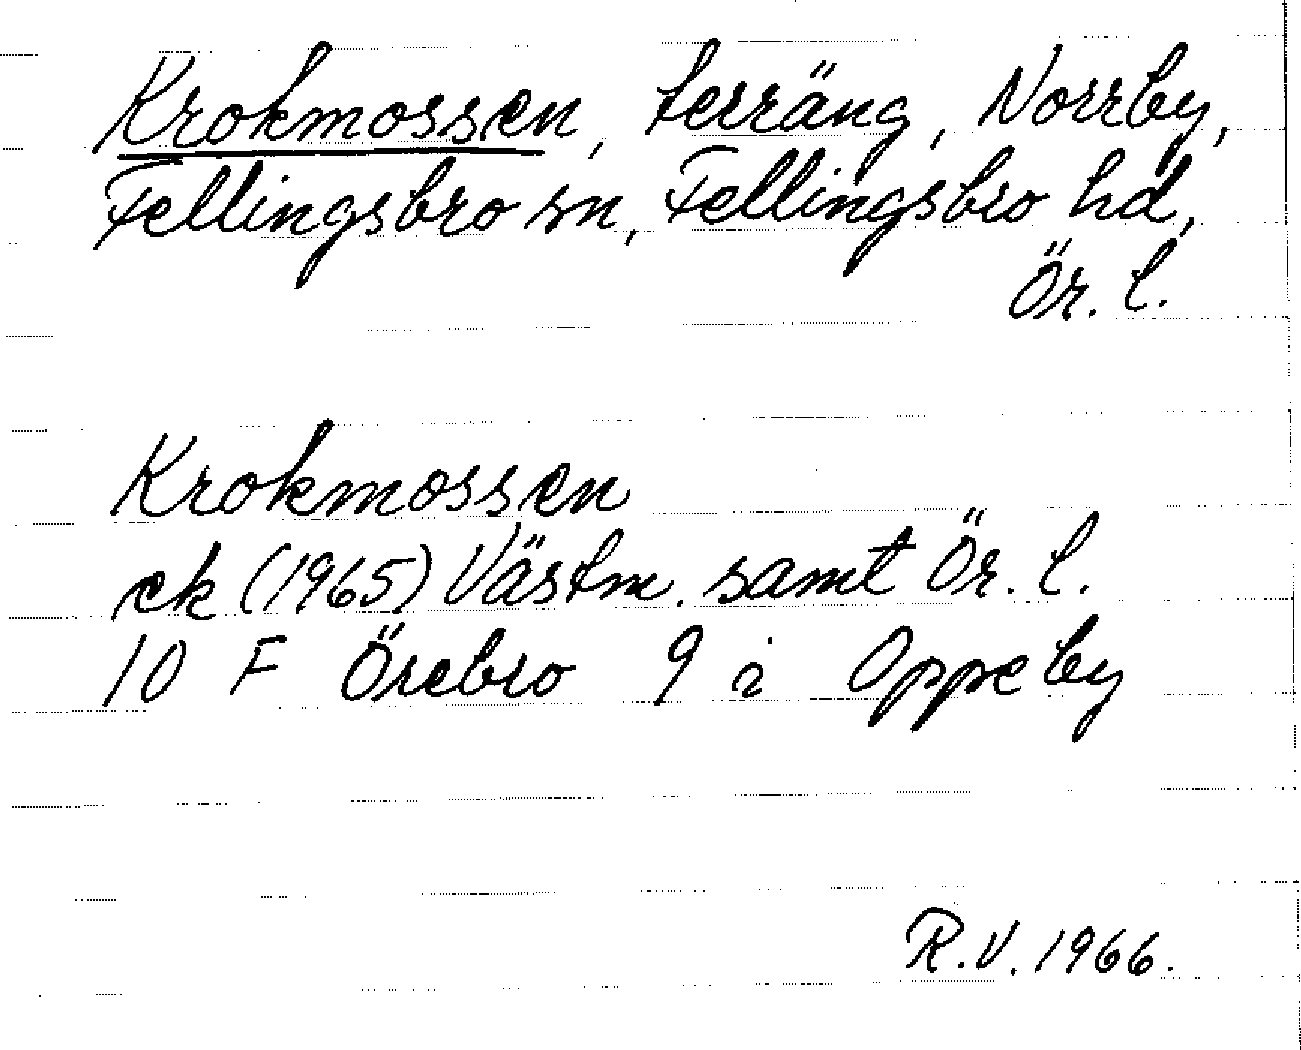 Krokmossen, terräng, Norrby,
Fellingsbro sn, Fellingsbro hd,
Ör. l.
Krokmossen
ek (1965) Västm. samt Ör. l.
10 F Örebro 9 i Oppeby
R.V. 1966.